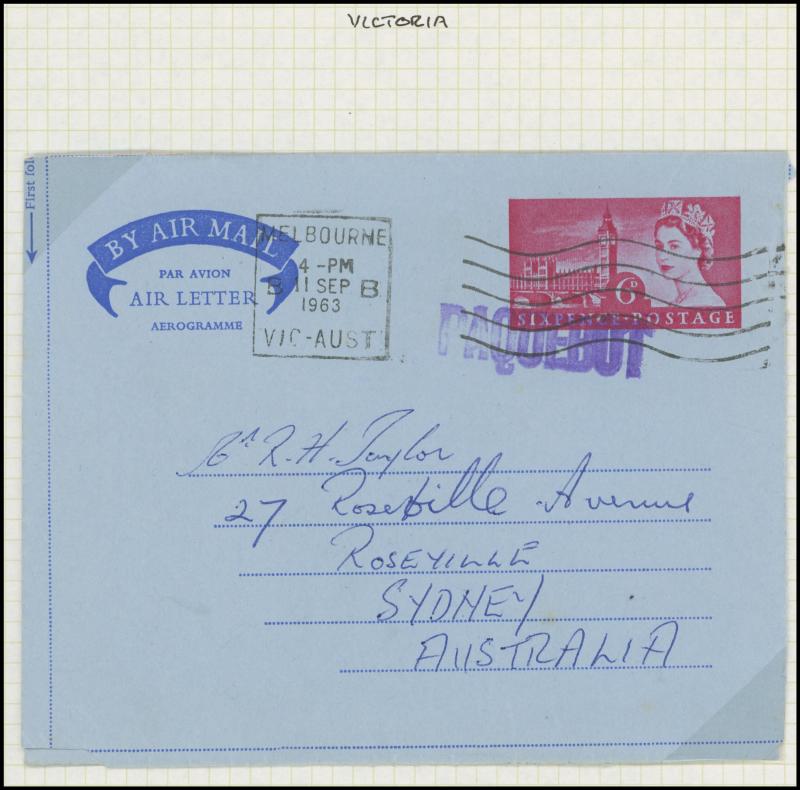 VICTORIA
First fol
BY AIR MAIL
PAR AVION
AIR LETTER
AEROGRAMME
MELBOURNE
4-PM
B 11 SEP B
1963
VIC-AUST
6D
SIXPENCE·POSTAGE
PAQUEBOT
R. H. Taylor
27 Roseville Avenue
ROSEVILLE
SYDNEY
AUSTRALIA